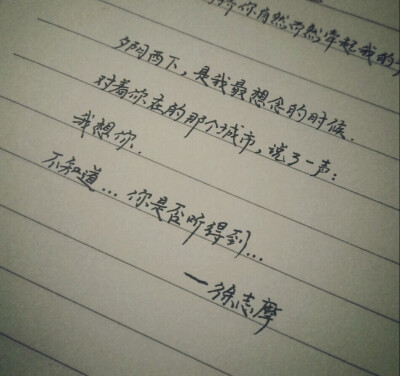 你自然而然牵起我的
夕阳西下，是我最想念的时候.
对着你在的那个城市，说了一声：
我想你.
不知道...你是否听得到...
—徐志摩